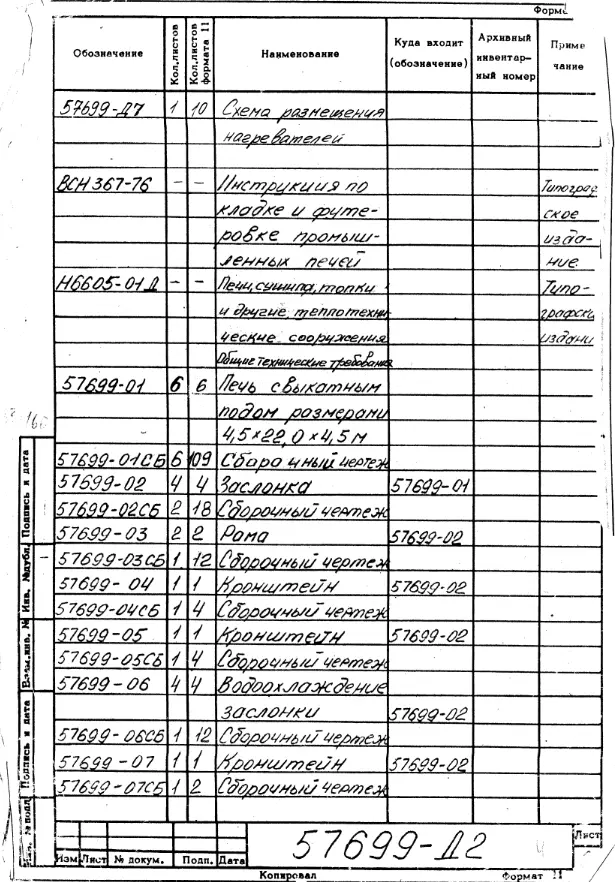 Форма
Обозначение | Кол.листов | Кол.листов формата 11 | Наименование | Куда входит (обозначение) | Архивный инвентар-ный номер | Приме чание
57699-Д7 | 1 | 10 | Схема размещения
нагревателей
ВСН 367-76 | – | – | Инструкция по | Типограф
кладке и футе- | ское
ровке промыш- | изда-
ленных печей | ние.
Н6605-01Д | – | – | Печи, сушила, топки | Типо-
и другие теплотехни | графск
ческие сооружения | издани
Общие технические требования
57699-01 | 6 | 6 | Печь с выкатным
подом размерами
4,5×22,0×4,5м
57699-01СБ | 6 | 109 | Сборочный чертеж
57699-02 | 4 | 4 | Заслонка | 57699-01
57699-02СБ | 2 | 18 | Сборочный чертеж
57699-03 | 2 | 2 | Рама | 57699-02
57699-03СБ | 1 | 12 | Сборочный чертеж
57699-04 | 1 | 1 | Кронштейн | 57699-02
57699-04СБ | 1 | 4 | Сборочный чертеж
57699-05 | 1 | 1 | Кронштейн | 57699-02
57699-05СБ | 1 | 4 | Сборочный чертеж
57699-06 | 4 | 4 | Водоохлаждение
заслонки | 57699-02
57699-06СБ | 1 | 12 | Сборочный чертеж
57699-07 | 1 | 1 | Кронштейн | 57699-02
57699-07СБ | 1 | 2 | Сборочный чертеж
Подпись и дата
Инв. №дубл.
Взам.инв. №
Подпись и дата
Инв. № подл
57699-Д2
Лист
4
Изм | Лист | № докум. | Подп. | Дата
Копировал
Формат 11